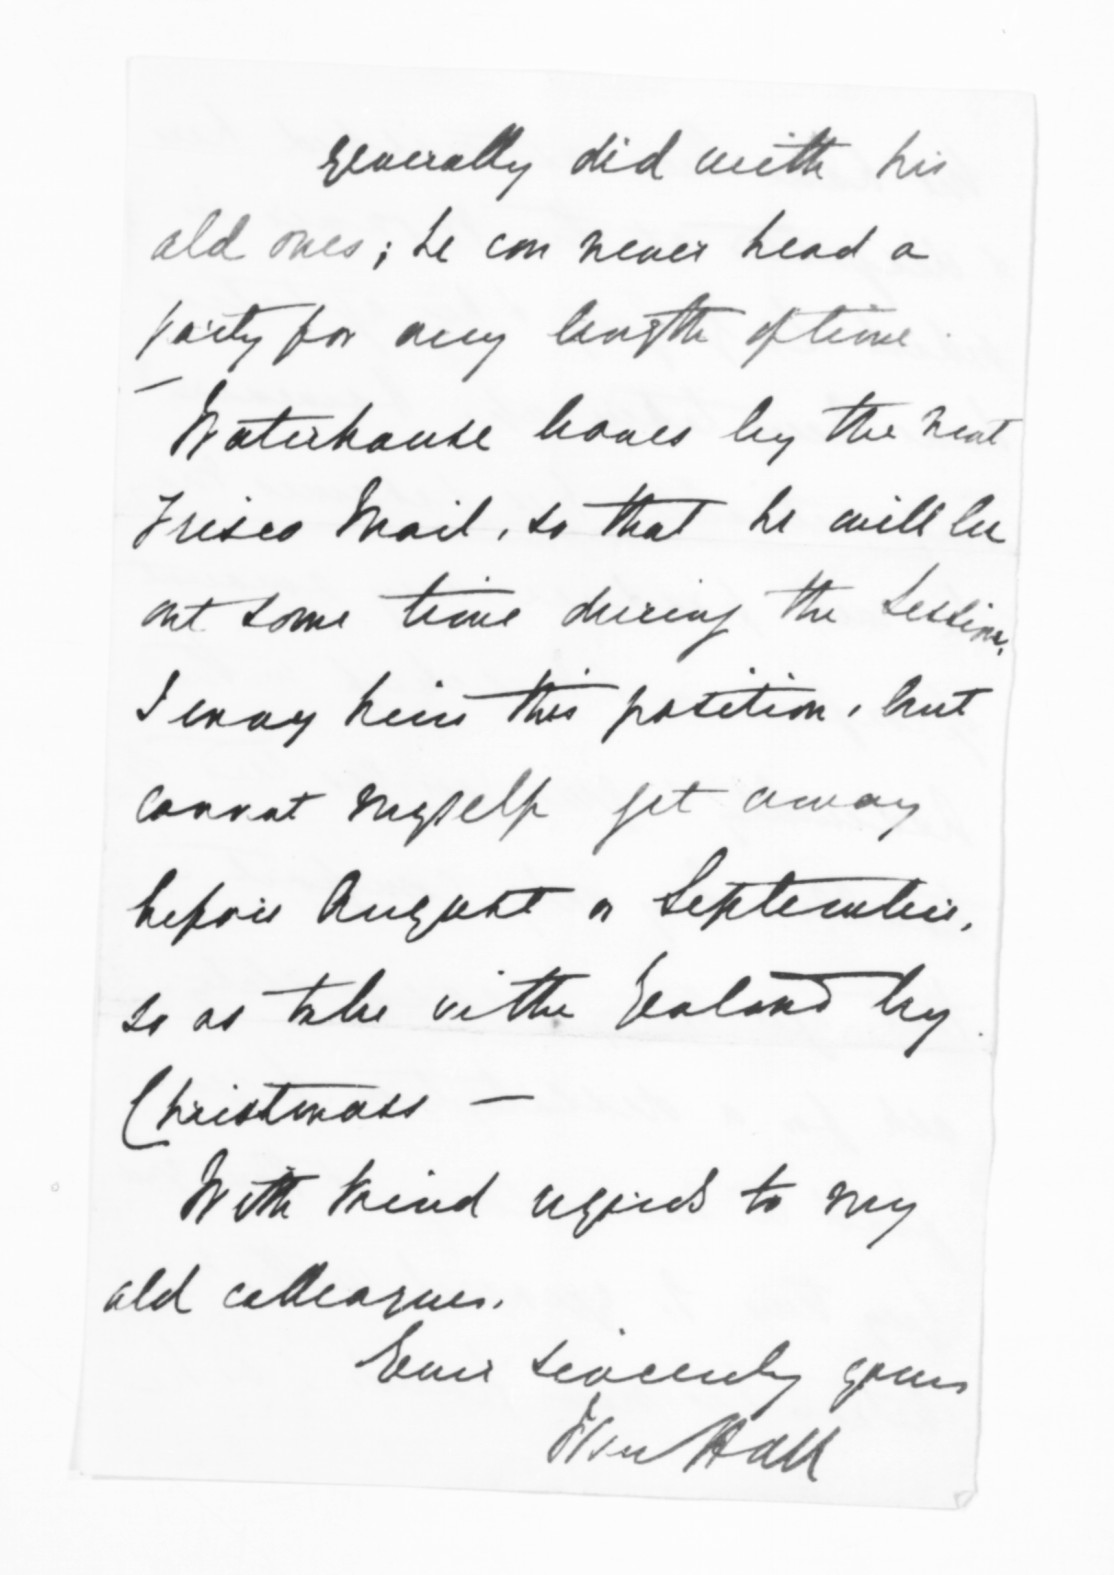 generally did with his
old ones; he can never head a
party for any length of time.
Waterhouse leaves by the next
Frisco Mail, so that he will be
out some time during the Session.
I envy him this position, but
cannot myself get away
before August or September,
so as to be in the Zealand by
Christmass —
With kind regards to my
old colleagues.
Ever sincerely yours
Hall